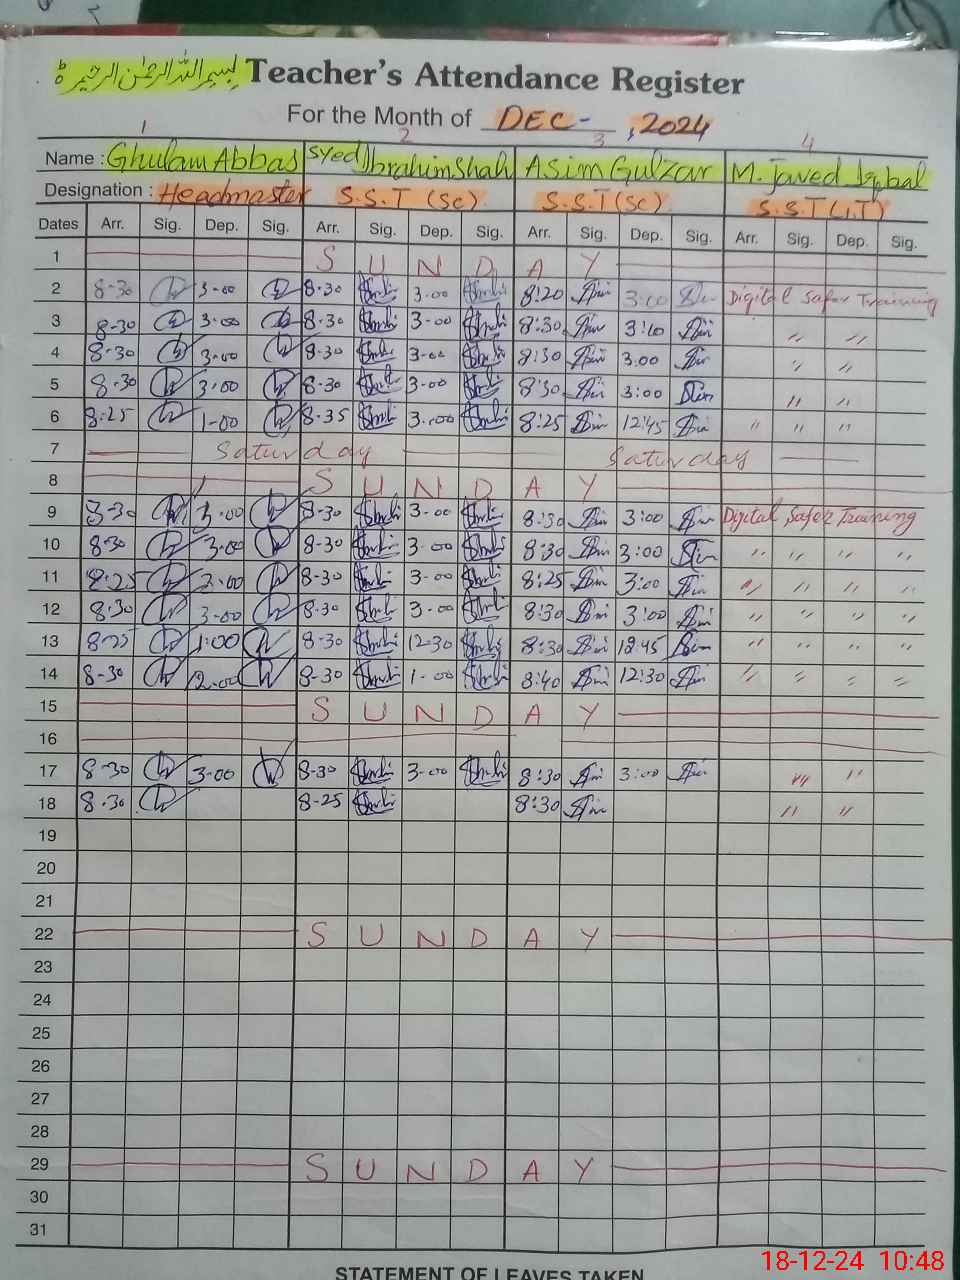 بِسْمِ اللهِ الرَّحْمٰنِ الرَّحِيْمِ Teacher's Attendance Register
For the Month of DEC- , 2024
1 2 3 4
Name : Ghulam Abbas Syed Ibrahim Shah Asim Gulzar M. Javed Iqbal
Designation : Headmaster S.S.T (Sc) S.S.T (SC) S.S.T (I.T)
Dates Arr. Sig. Dep. Sig. Arr. Sig. Dep. Sig. Arr. Sig. Dep. Sig. Arr. Sig. Dep. Sig.
1 S U N D A Y
2 8-30 3-00 8-30 3-00 8:20 3:00 Digital Safer Training
3 8-30 3-00 8-30 3-00 8:30 3:10 " "
4 8-30 3-00 8-30 3-00 8:30 3:00 " "
5 8-30 3:00 8-30 3-00 8:30 3:00 " "
6 8:25 1-00 8-35 3-00 8:25 12:45 " " "
7 Saturday Saturday
8 S U N D A Y
9 8-30 3-00 8-30 3-00 8:30 3:00 Digital Safer Training
10 8-30 3-00 8-30 3-00 8:30 3:00 " " " "
11 8-25 3-00 8-30 3-00 8:25 3:00 " " " "
12 8-30 3-00 8-30 3-00 8:30 3:00 " " " "
13 1:00 8-30 12-30 8:30 12:45 " " " "
14 8-30 12-00 8-30 1-00 8:40 12:30 " " " "
15 S U N D A Y
16
17 8-30 3-00 8-30 3-00 8:30 3:00 " "
18 8-30 8-25 8:30 " "
19
20
21
22 S U N D A Y
23
24
25
26
27
28
29 S U N D A Y
30
31
18-12-24 10:48
STATEMENT OF LEAVES TAKEN